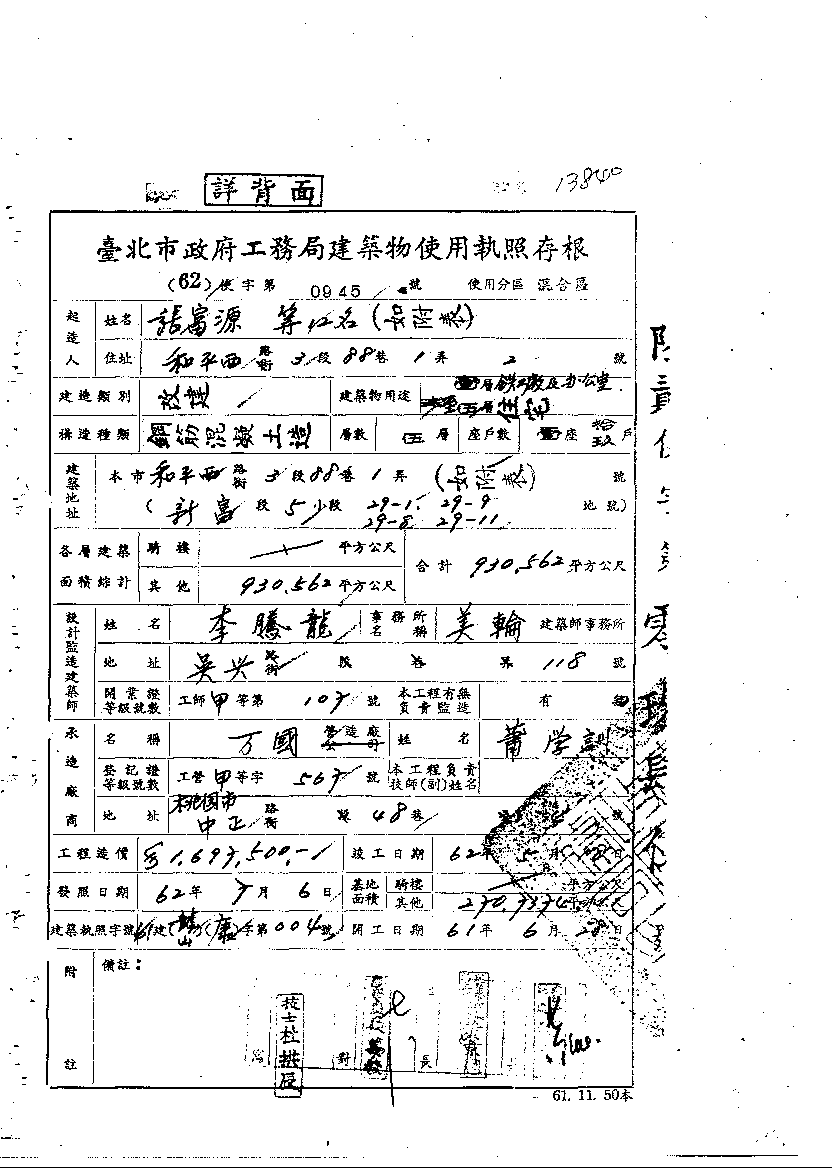 詳背面
13840
臺北市政府工務局建築物使用執照存根
(62)使字第 0945 號 使用分區 混合區
起造人 姓名 張富源 等12名(如附表)
住址 和平西路街 3段 88巷 1弄 2 號
建造類別 改建 建築物用途 壹層 及办公室
伍層住宅
構造種類 鋼筋混凝土造 層數 伍層 座戶數 壹座 拾玖戶
建築地址 本市 和平西路街 3段 88巷 1弄 (如附表) 號
(新富 段 5 少段 29-1. 29-9 地號)
29-8 29-11
各層建築面積綜計 騎樓 平方公尺 合計 930.562 平方公尺
其他 930.562 平方公尺
設計監造建築師 姓名 李騰龍 事務所名稱 美輪 建築師事務所
地址 吳兴路街 段 巷 弄 118 號
開業證等級號數 工師甲等第 107 號 本工程有無負責監造 有
承造廠商 名稱 万國 營造廠公司 姓名 蕭学訓
登記證等級號數 工營甲等字 567 號 本工程負責技師(副)姓名
地址 桃園市中正路街 段 48巷 號
工程造價 1,697,500.- 竣工日期 62年 5月 日
發照日期 62年 7月 6日 基地面積 騎樓 平方公尺
其他
建築執照字號 61建( )( )字第004號 開工日期 61年 6月 28日
附註 備註:
技士杜 對 長
61. 11. 50本